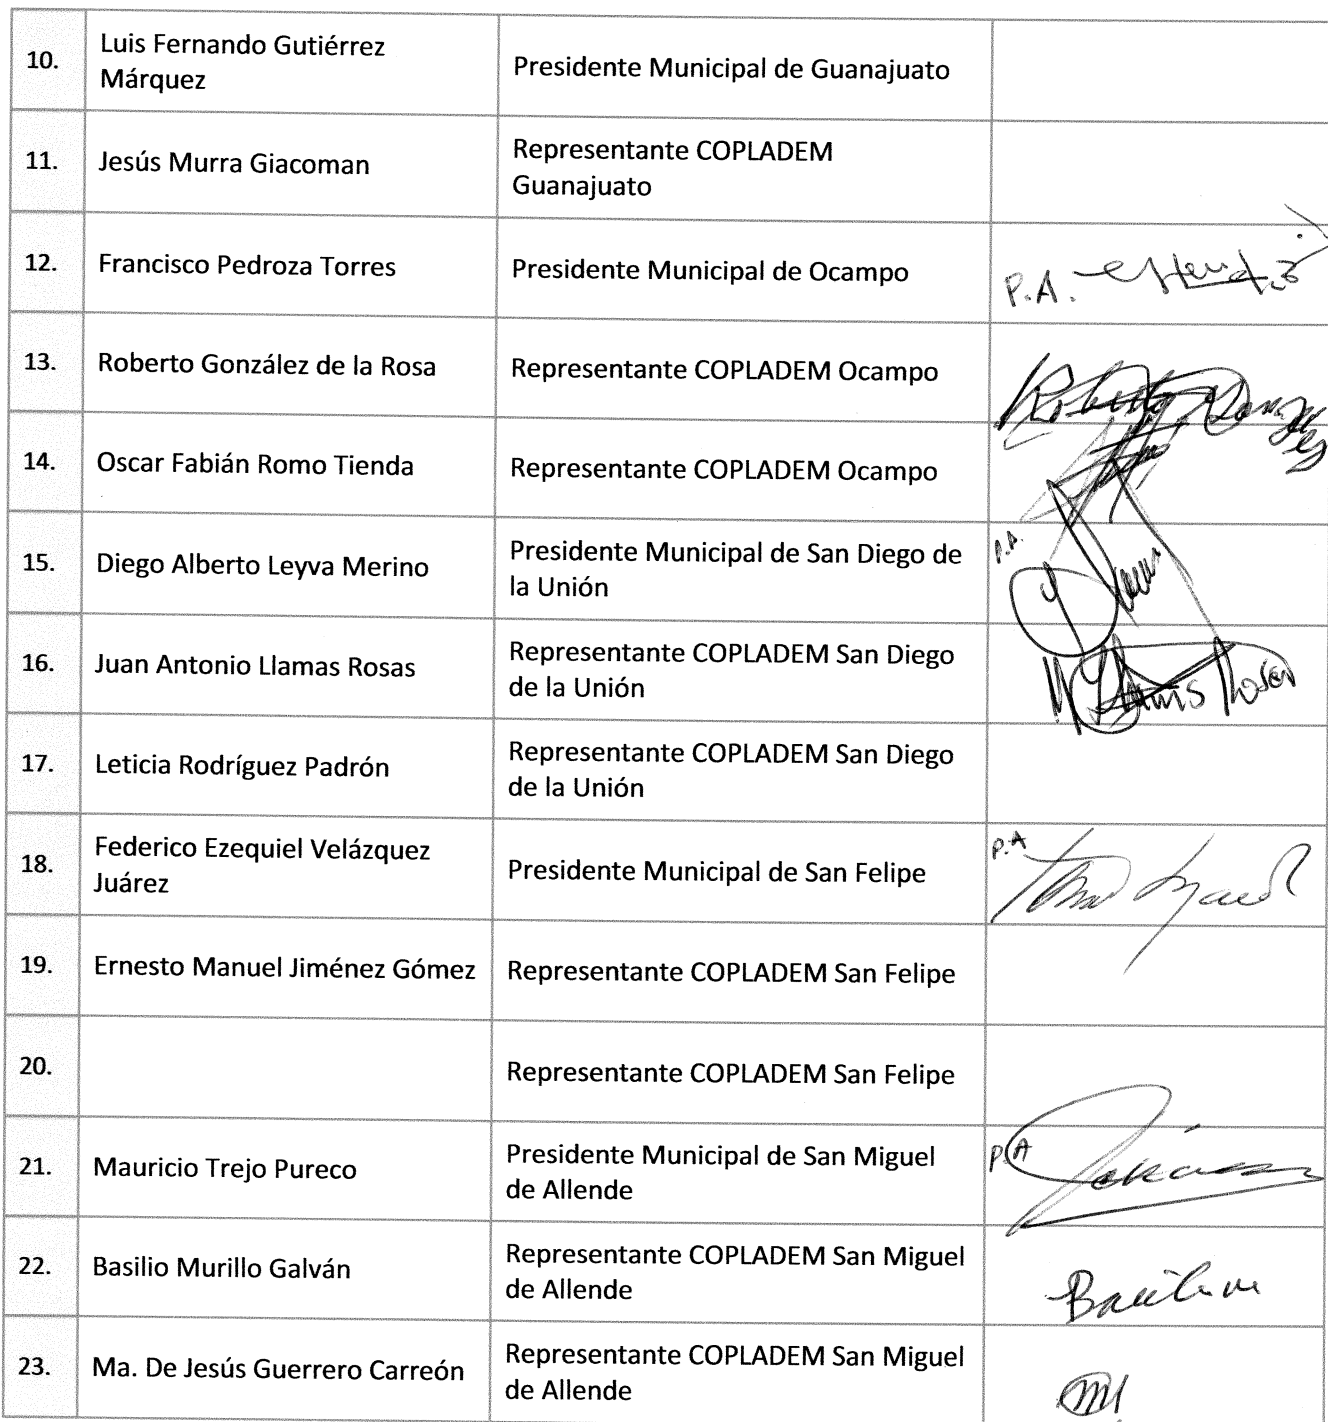 10.
Luis Fernando Gutiérrez
Márquez
Presidente Municipal de Guanajuato
11.
Jesús Murra Giacoman
Representante COPLADEM
Guanajuato
12.
Francisco Pedroza Torres
Presidente Municipal de Ocampo
P.A.
13.
Roberto González de la Rosa
Representante COPLADEM Ocampo
Roberto Gonzalez
14.
Oscar Fabián Romo Tienda
Representante COPLADEM Ocampo
15.
Diego Alberto Leyva Merino
Presidente Municipal de San Diego de
la Unión
P.A.
16.
Juan Antonio Llamas Rosas
Representante COPLADEM San Diego
de la Unión
17.
Leticia Rodríguez Padrón
Representante COPLADEM San Diego
de la Unión
18.
Federico Ezequiel Velázquez
Juárez
Presidente Municipal de San Felipe
P.A
19.
Ernesto Manuel Jiménez Gómez
Representante COPLADEM San Felipe
20.
Representante COPLADEM San Felipe
21.
Mauricio Trejo Pureco
Presidente Municipal de San Miguel
de Allende
P.A
22.
Basilio Murillo Galván
Representante COPLADEM San Miguel
de Allende
23.
Ma. De Jesús Guerrero Carreón
Representante COPLADEM San Miguel
de Allende